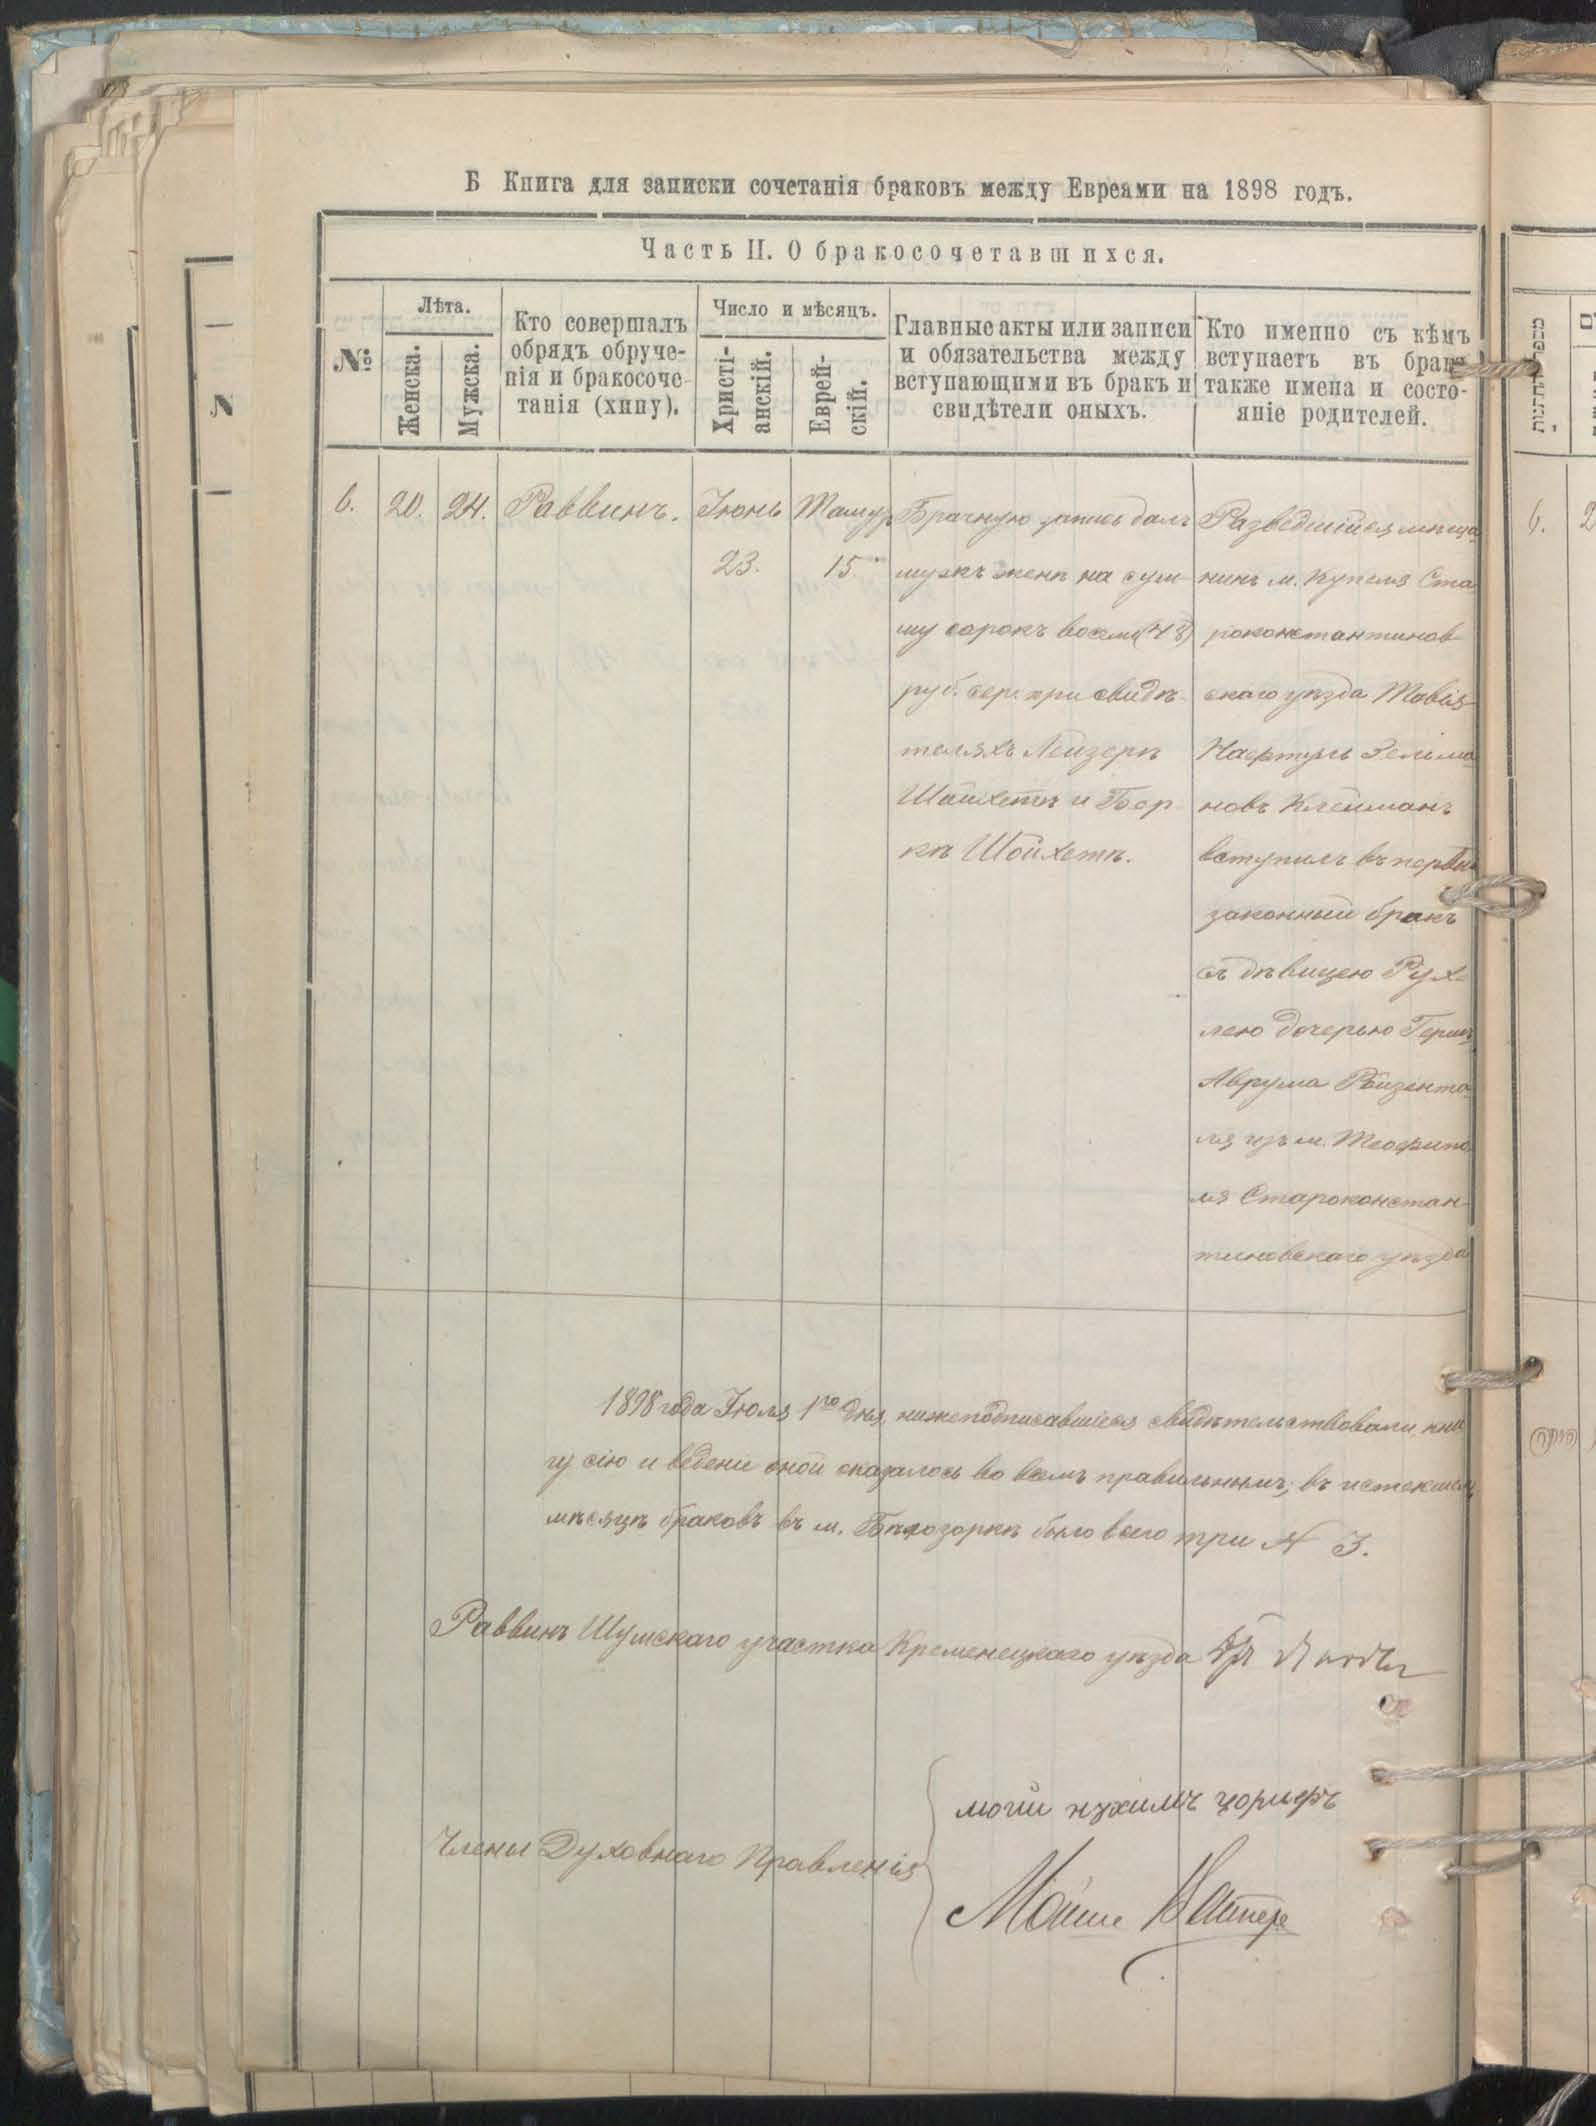 Б Книга для записки сочетанія браковъ между Евреами на 1898 годъ.
Часть II. О бракосочетавшихся.
№
Лѣта.
Женска.
Мужска.
Кто совершалъ
обрядъ обруче-
нія и бракосоче-
танія (хипу).
Число и мѣсяцъ.
Христі-
анскій.
Еврей-
скій.
Главные акты или записи
и обязательства между
вступающими въ бракъ и
свидѣтели оныхъ.
Кто именно съ кѣмъ
вступаетъ въ бракъ
также имена и состо-
яніе родителей.
6.
20.
24.
Раввинъ.
Іюнь
23.
Тамуз
15.
Брачную запись далъ
мужъ женѣ на сум-
му сорокъ восемь (48)
руб. сер. при свидѣ-
теляхъ Лейзерѣ
Шойхетѣ и Бер
кѣ Шойхетѣ.
Разведшійся мѣща
нинъ м. Купеля Ста
роконстантинов-
скаго уѣзда Товія
Нафтулъ Зельма
новъ Клейманъ
вступилъ въ первый
законный бракъ
съ дѣвицею Рух-
лею дочерью Герша
Аврума Ройзента
ля изъ м. Теофипо
ля Староконстан-
тиновскаго уѣзда
1898 года Іюля 1го дня, нижеподписавшіеся свидѣтельствовали кни
гу сію и веденіе оной оказалось во всемъ правильнымъ; въ истекшемъ
мѣсяцѣ браковъ въ м. Бѣлозоркѣ было всего три № 3.
Раввинъ Шумскаго участка Кременецкаго уѣзда
Члены Духовнаго Правленія
нухимъ
Мойше
N
6.